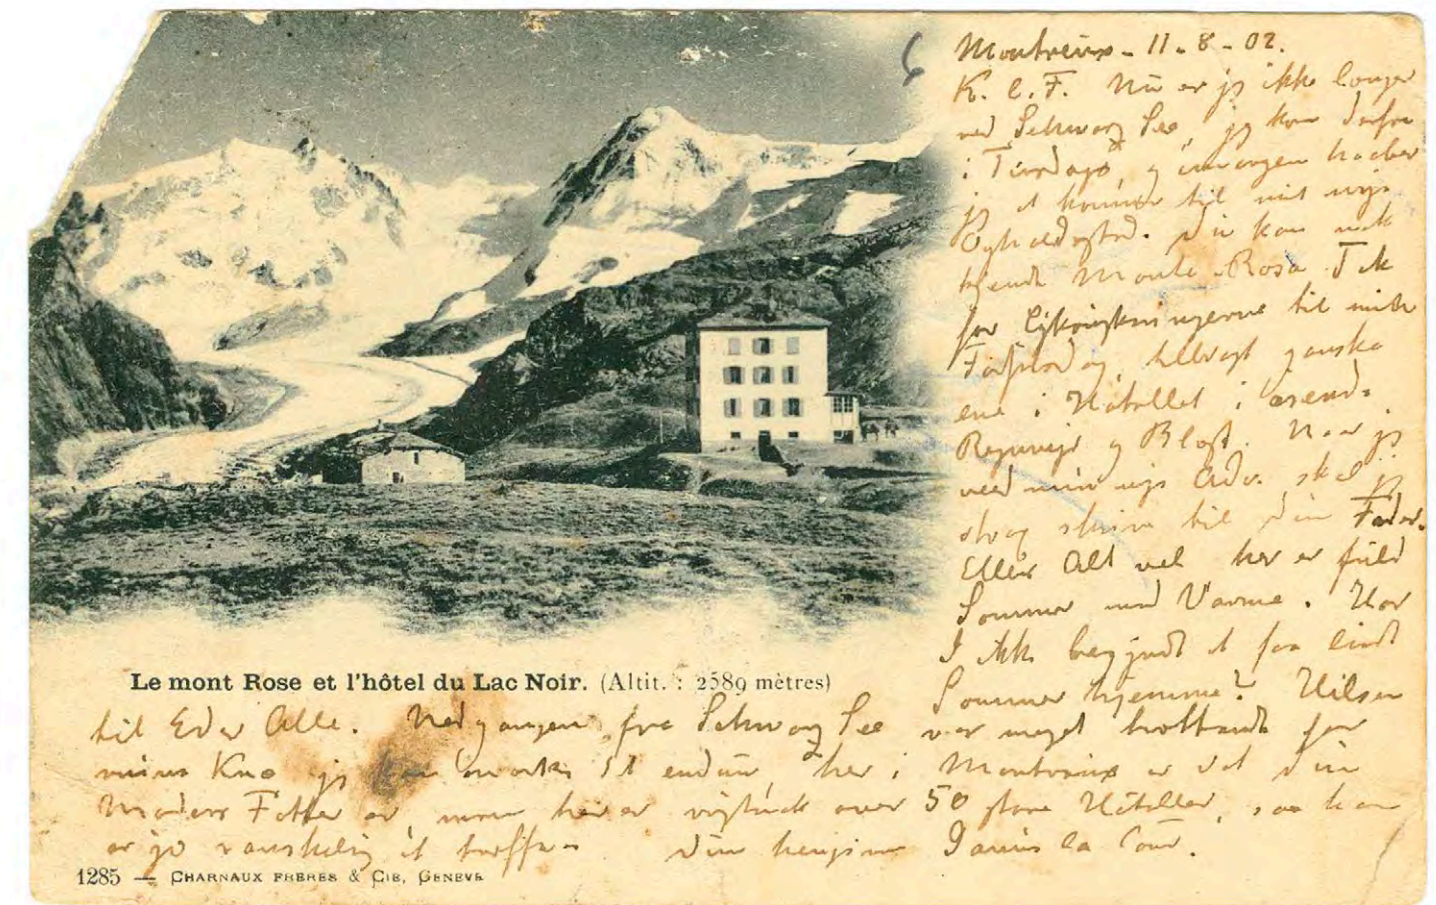 6
Montreux - 11 - 8 - 02.
K. C. F. Nu er jeg ikke længer
ved Schwarz See, jeg kom derfra
i Tirsdags, og imorgen haaber
jeg at kommer til mit nye
Opholdssted. Du kan nok
kjende Monte Rosa. Tak
for Lykønskningerne til min
Fødselsdag, tilbragt ganske
ene i Hotellet i
Regnvejr og Blæst. Naar jeg
veed min nye Adr. skal jeg
strax skrive til din Fader.
Ellers Alt vel her er fuld
Sommer med Varme. Har
I ikke begyndt at faa lidt
Sommer hjemme? Hilsen
til Eder Alle. Nedgangen fra Schwarz See var meget
for
mine Knæ jeg kan mærke det endnu, her i Montreux er det din
Moders Fætter er, men her er vistnok over 50 store Hoteller, saa han
er jo vanskelig at træffe. Din hengivne Janus la Cour.
Le mont Rose et l'hôtel du Lac Noir. (Altit. : 2589 mètres)
1285 — CHARNAUX FRÈRES & Cie, GENÈVE